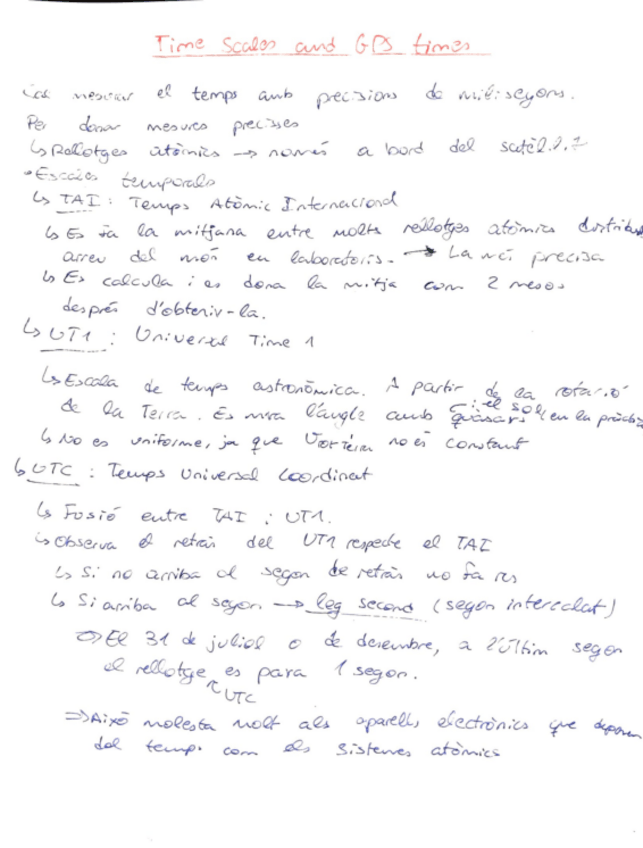 Time Scales and GPS times
Cal mesurar el temps amb precisions de milisegons.
Per donar mesures precisses
↳ Rellotges atòmics → només a bord del satèl.l.t
• Escales temporals
↳ TAI: Temps Atòmic Internacional
↳ Es fa la mitjana entre molts rellotges atòmics distribu
arreu del món en laboratoris. → La més precisa
↳ Es calcula i es dona la mitja com 2 mesos
després d'obteniv-la.
↳ UT1 : Universal Time 1
↳ Escala de temps astronòmica. A partir de la rotació
de la Terra. Es mira l'angle amb quàsars i el sol en la pràctic
↳ No es uniforme, ja que no és constant
↳ UTC : Temps Universal Coordinat
↳ Fusió entre TAI i UT1.
↳ Observa el retràs del UT1 respecte el TAI
↳ Si no arriba al segon de retràs no fa res
↳ Si arriba al segon → leg second (segon intercalat)
⇒ El 31 de juliol o de desembre, a l'últim segon
el rellotge es para 1 segon.
UTC
⇒ Això molesta molt als aparells electrònics que depenen
del temps com els sistemes atòmics